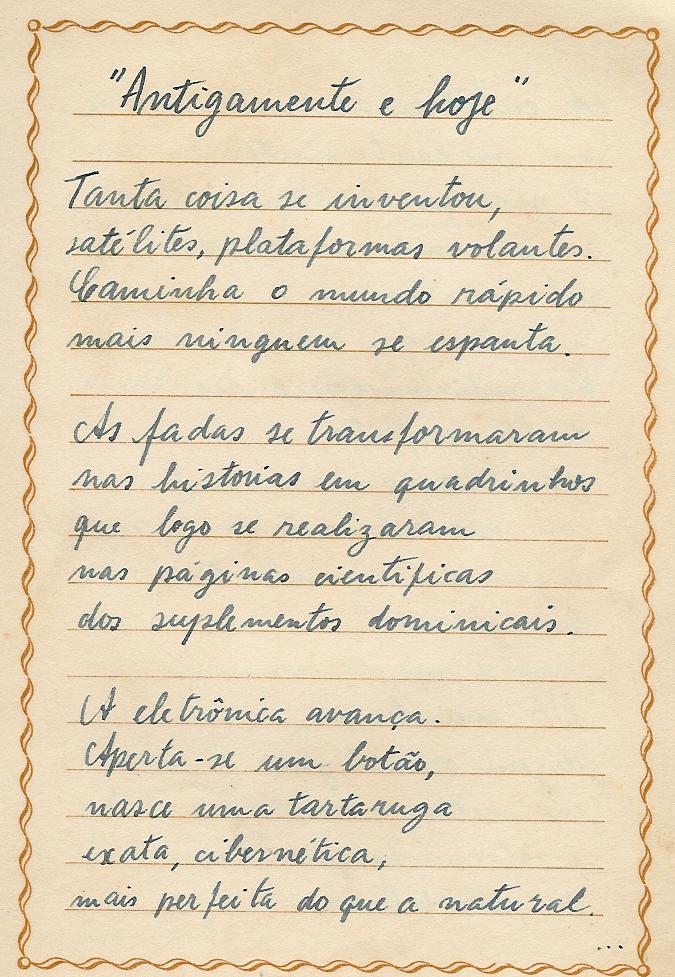 "Antigamente e hoje"
Tanta coisa se inventou,
satélites, plataformas volantes.
Caminha o mundo rápido
mais ninguem se espanta.
As fadas se transformaram
nas historias em quadrinhos
que logo se realizaram
nas páginas cientificas
dos suplementos dominicais.
A eletrônica avança.
Aperta-se um botão,
nasce uma tartaruga
exata, cibernética,
mais perfeita do que a natural.
...